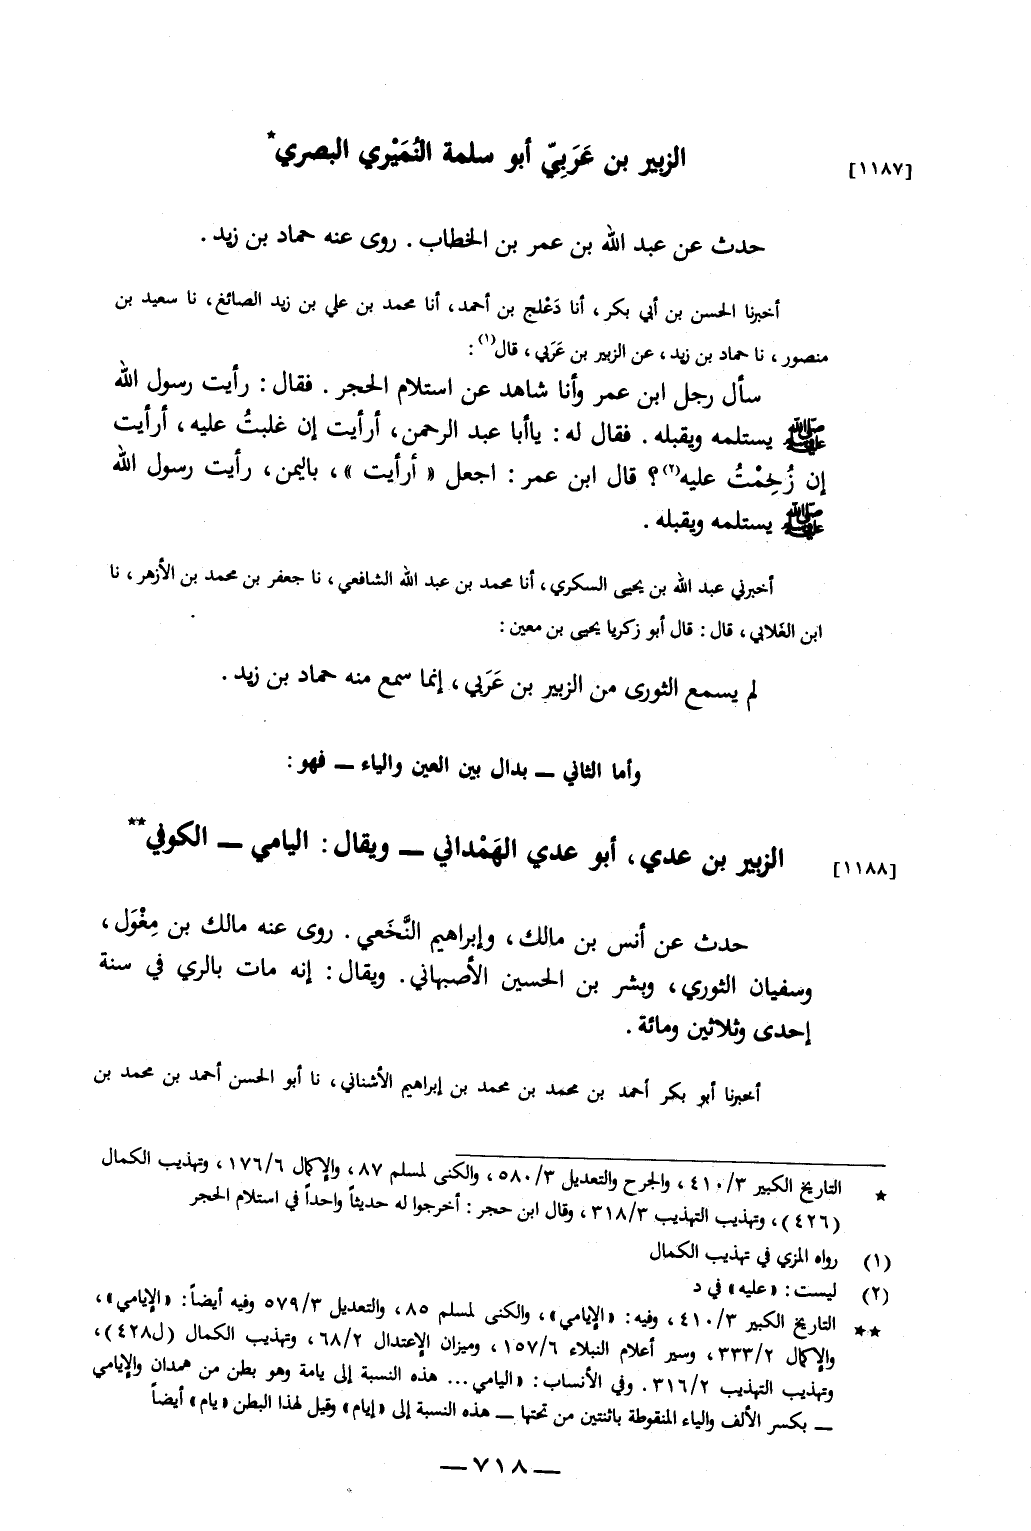 [١١٨٧] الزبير بن عَرَبِيّ أبو سلمة النُمَيْري البصري*
حدث عن عبد الله بن عمر بن الخطاب . روى عنه حماد بن زيد .
أخبرنا الحسن بن أبي بكر ، أنا دَعْلج بن أحمد، أنا محمد بن علي بن زيد الصائغ ، نا سعيد بن
منصور ، نا حماد بن زيد ، عن الزبير بن عَرَبي ، قال(١) :
سأل رجل ابن عمر وأنا شاهد عن استلام الحجر . فقال : رأيت رسول الله
ﷺ يستلمه ويقبله . فقال له : ياأبا عبد الرحمن، أرأيت إن غلبتُ عليه ، أرأيت
إن زُحِمْتُ عليه(٢)؟ قال ابن عمر : اجعل « أرأيت »، باليمن، رأيت رسول الله
ﷺ يستلمه ويقبله .
أخبرني عبد الله بن يحيى السكري ، أنا محمد بن عبد الله الشافعي ، نا جعفر بن محمد بن الأزهر ، نا
ابن الغَلابي ، قال : قال أبو زكريا يحيى بن معين :
لم يسمع الثورى من الزبير بن عَرَبي ، إنما سمع منه حماد بن زيد .
وأما الثاني — بدال بين العين والياء — فهو :
[١١٨٨] الزبير بن عدي ، أبو عدي الهَمْداني — ويقال : اليامي — الكوفي**
حدث عن أنس بن مالك ، وإبراهيم النَّخَعي . روى عنه مالك بن مِغْوَل ،
وسفيان الثوري ، وبشر بن الحسين الأصبهاني . ويقال : إنه مات بالري في سنة
إحدى وثلاثين ومائة .
أخبرنا أبو بكر أحمد بن محمد بن محمد بن إبراهيم الأشناني ، نا أبو الحسن أحمد بن محمد بن
* التاريخ الكبير ٤١٠/٣ ، والجرح والتعديل ٥٨٠/٣ ، والكنى لمسلم ٨٧ ، والإكمال ١٧٦/٦ ، وتهذيب الكمال
(٤٢٦) ، وتهذيب التهذيب ٣١٨/٣ ، وقال ابن حجر : أخرجوا له حديثاً واحداً في استلام الحجر
(١) رواه المزي في تهذيب الكمال
(٢) ليست : «عليه» في د
** التاريخ الكبير ٤١٠/٣ ، وفيه : «الإيامي» ، والكنى لمسلم ٨٥ ، والتعديل ٥٧٩/٣ وفيه أيضاً : «الإيامي» ،
والإكمال ٣٣٣/٢ ، وسير أعلام النبلاء ١٥٧/٦ ، وميزان الإعتدال ٦٨/٢ ، وتهذيب الكمال (ل٤٢٨) ،
وتهذيب التهذيب ٣١٦/٢ . وفي الأنساب : «اليامي ... هذه النسبة إلى يامة وهو بطن من همدان والإيامي
— بكسر الألف والياء المنقوطة باثنتين من تحتها — هذه النسبة إلى «إيام» وقيل لهذا البطن «يام» أيضاً
— ٧١٨ —